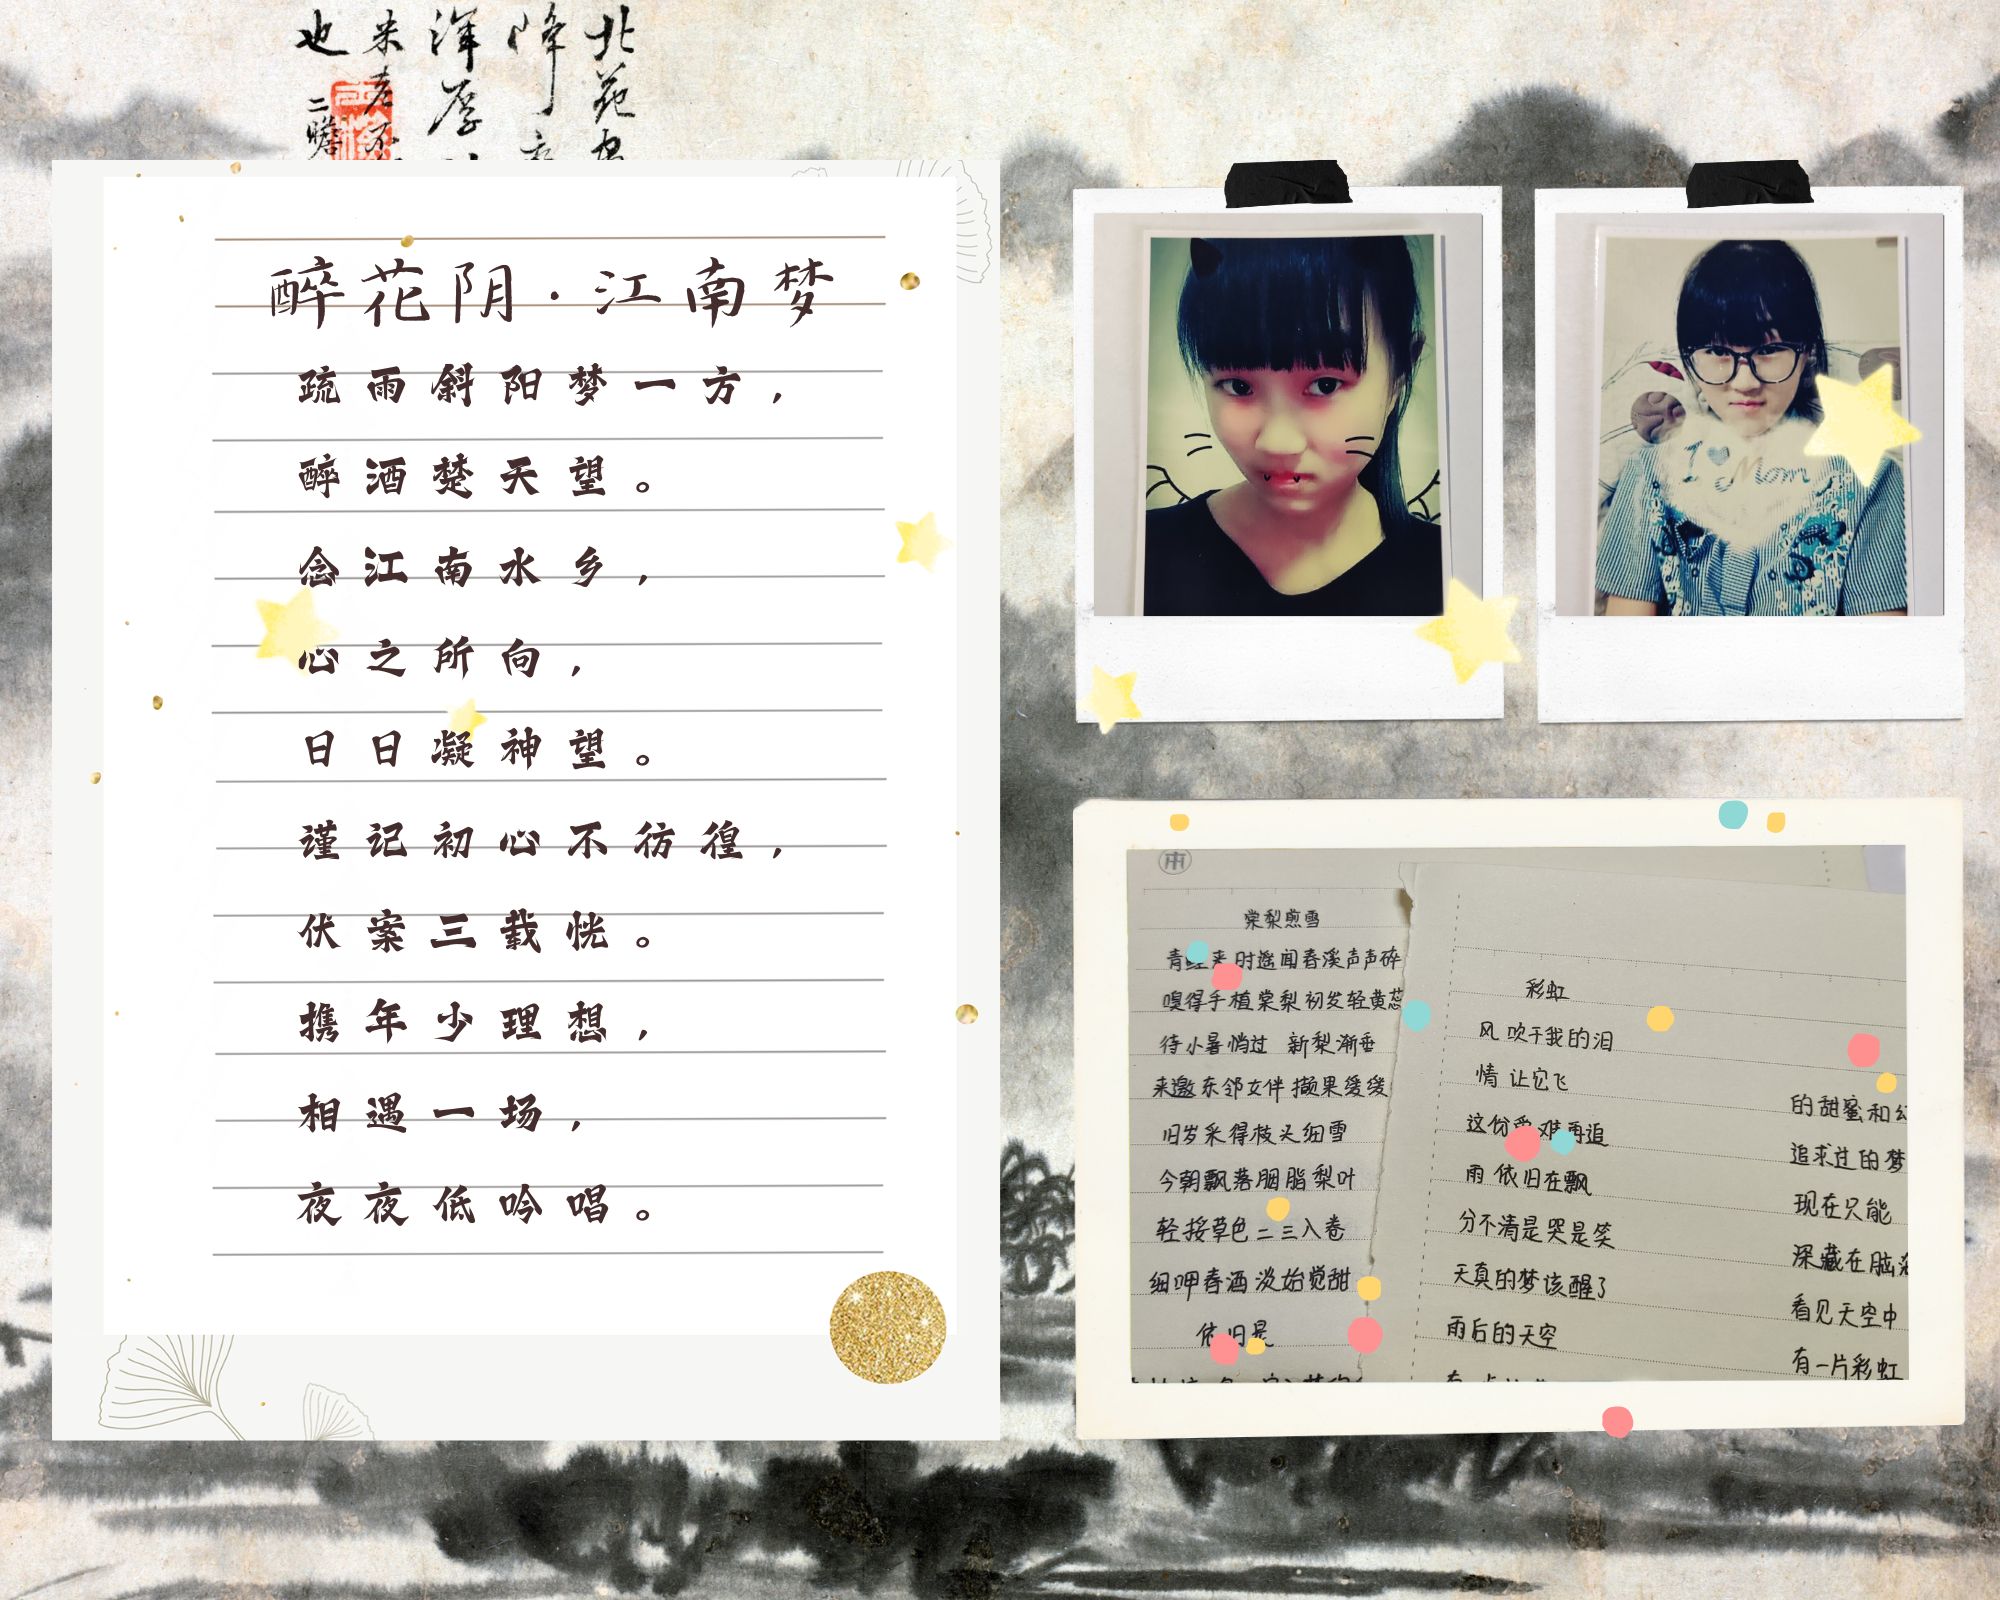 北苑
降
浑厚
米老不
也
二瞻
醉花阴·江南梦
疏雨斜阳梦一方，
醉酒楚天望。
念江南水乡，
心之所向，
日日凝神望。
谨记初心不彷徨，
伏案三载恍。
携年少理想，
相遇一场，
夜夜低吟唱。
I Mom
棠梨煎雪
青 来时遥闻春溪声声碎
嗅得手植棠梨初发轻黄蕊
待小暑悄过 新梨渐垂
来邀东邻女伴撷果缓缓
旧岁采得枝头细雪
今朝飘落胭脂梨叶
轻挼草色二三入卷
细呷春酒淡始觉甜
依旧是
彩虹
风吹干我的泪
情让它飞
这份爱难再追
雨依旧在飘
分不清是哭是笑
天真的梦该醒了
雨后的天空
的甜蜜和
追求过的梦
现在只能
深藏在脑海
看见天空中
有一片彩虹